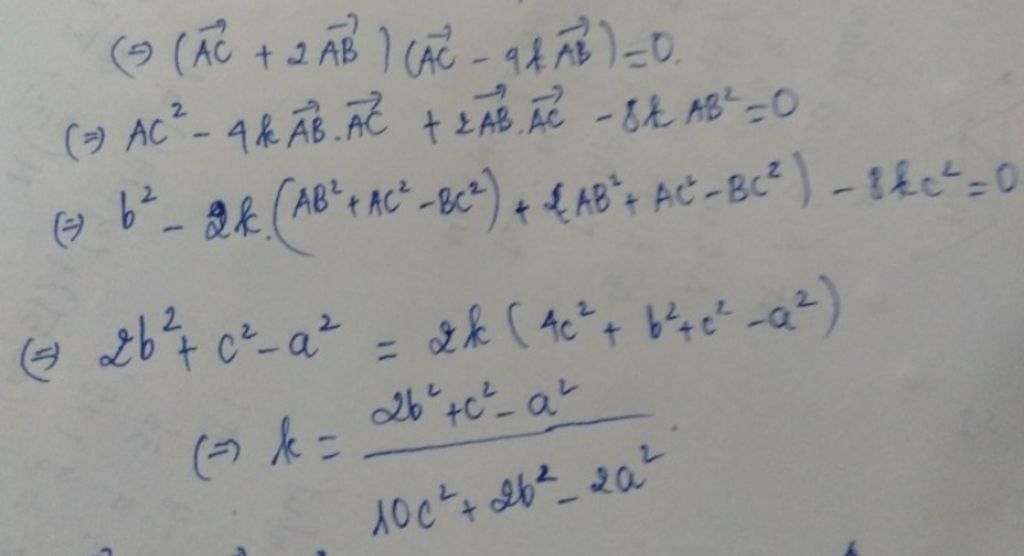 (⇒ (\vec{AC} + 2\vec{AB})(\vec{AC} - 4k\vec{AB}) = 0.
(⇒) AC² - 4k \vec{AB}.\vec{AC} + 2\vec{AB}.\vec{AC} - 8k AB² = 0
(⇒) b² - 2k.(AB² + AC² - BC²) + (AB² + AC² - BC²) - 8kc² = 0
(⇒) 2b² + c² - a² = 2k(4c² + b² + c² - a²)
(⇒) k = \frac{2b² + c² - a²}{10c² + 2b² - 2a²}.